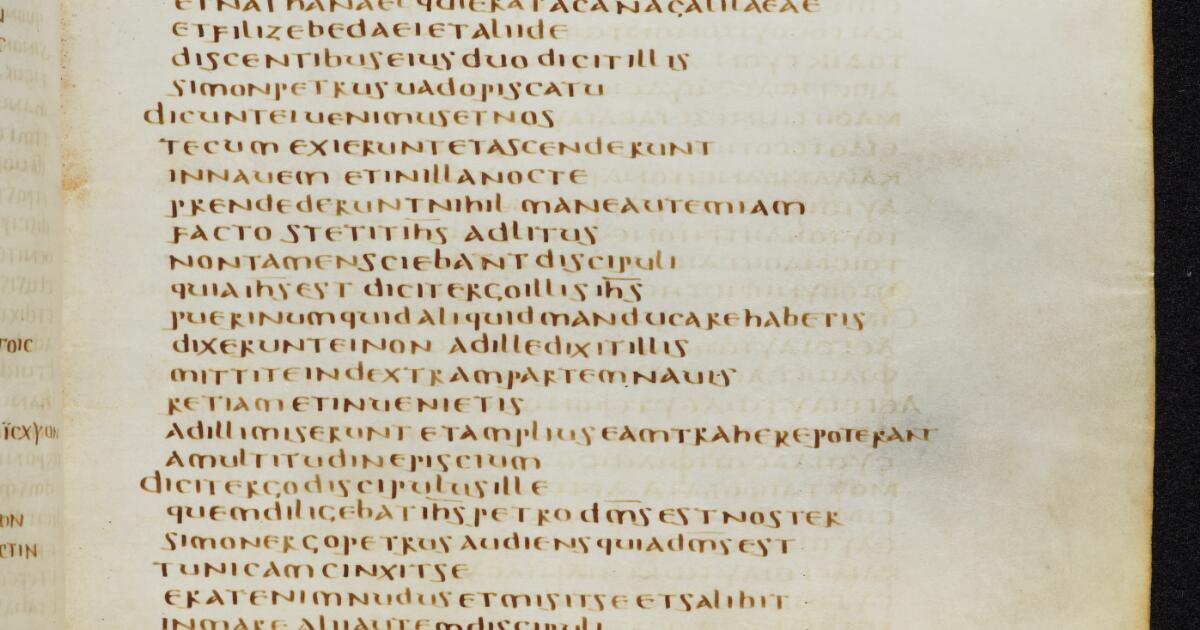 ETNATHANAELQUIERATACANAGALILAEAE
ETFILIZEBEDAEIETALIIDE
DISCENTIBUSEIUSDUO DICITILLIS
SIMONPETRUSUADOPISCATU
DICUNTEIUENIMUSETNOS
TECUM EXIERUNTETASCENDERUNT
INNAUEM ETINILLANOCTE
PRENDEDERUNTNIHIL MANEAUTEMIAM
FACTO STETITIHS ADLITUS
NONTAMENSCIEBANT DISCIPULI
QUIAIHSEST DICITERGOILLIS IHS
PUERINUMQUIDALIQUIDMANDUCAREHABETIS
DIXERUNTEINON ADILLEDIXITILLIS
MITTITEINDEXTRAMPARTEMNAUIS
RETIAMETINUENIETIS
ADILLIMISERUNT ETAMPLIUSEAMTRAHEREPOTERANT
AMULTITUDINEPISCIUM
DICITERGODISCIPULUSILLE
QUEMDILIGEBATIHSPETRO DMSESTNOSTER
SIMONERGOPETRUS AUDIENSQUIADMSEST
TUNICAMCINXITSE
ERATENIMNUDUSETMISITSEETSALIBIT
INMARE ALIIAUTEMDISCIPULI